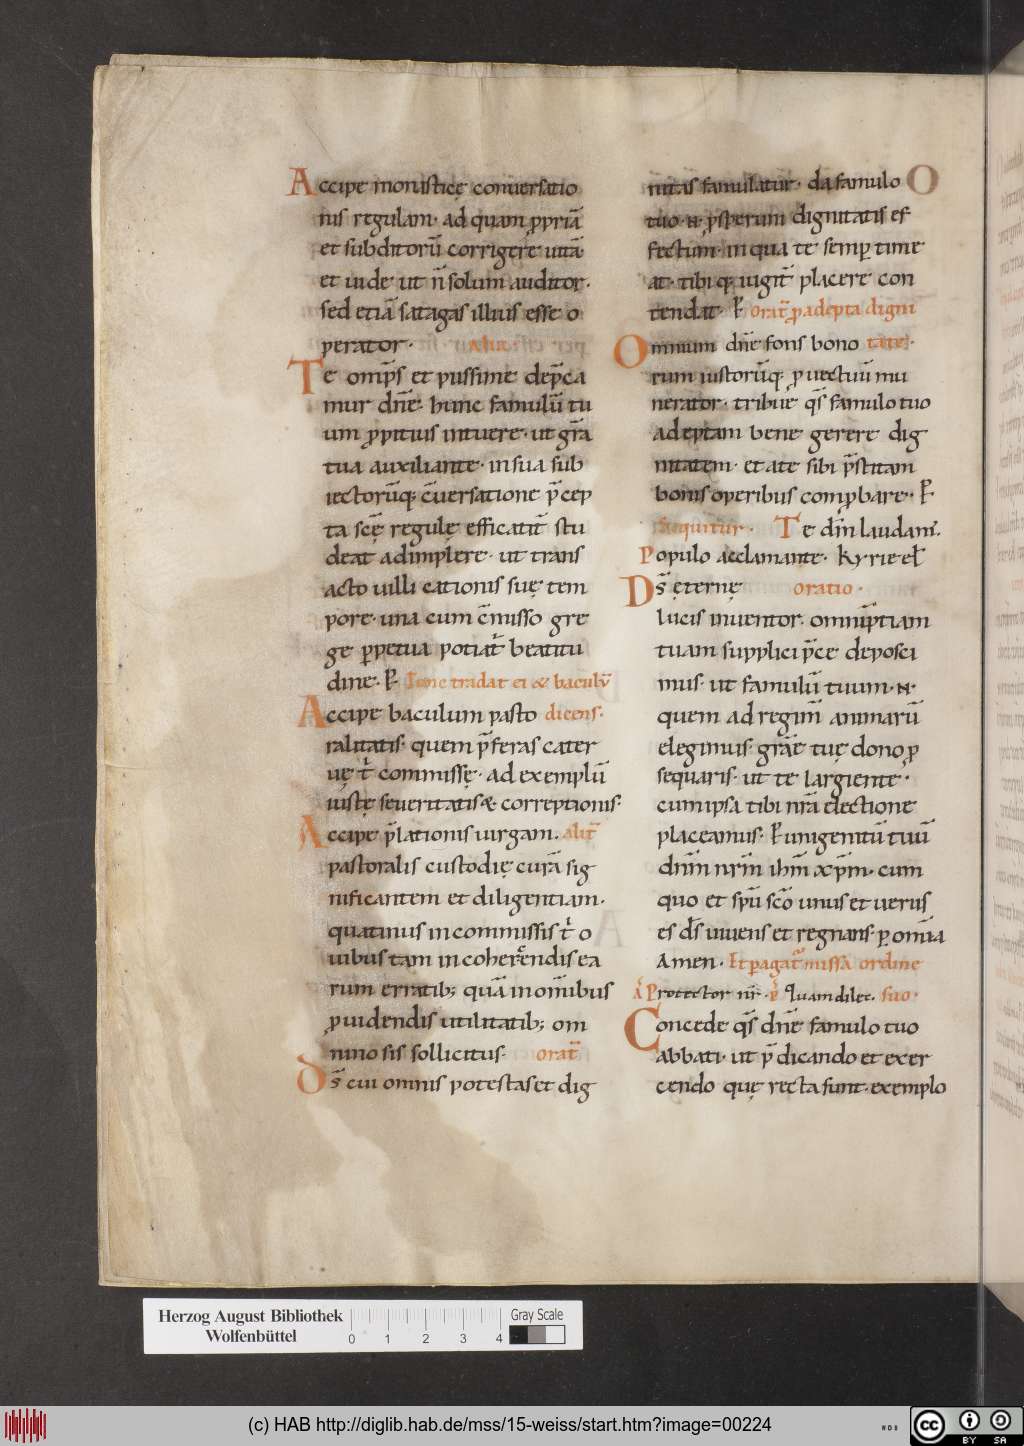 Accipe monasticę conuersatio
nis regulam· ad quam ꝓpriā
et subditorū corrigere uitā
et uide ut n̄ solum auditor·
sed etiā satagas illius esse o
perator·
Te omp̄s et piissime dep̄ca
mur dn̄e· hunc famulū tu
um ꝓpitius intuere· ut gr̄a
tua auxiliante· in sua sub
iectorūq; c̄uersatione p̄cep
ta scę̄ regulę efficatit̄ stu
deat adimplere· ut trans
acto uilli cationis suę tem
pore· una cum c̄misso gre
ge ꝑpetua potiat̄ beatitu
dine· P̄ tradat ei & baculū
Accipe baculum pasto dicens·
ralitatis· quem p̄feras cater
uę t̄ commissę· ad exemplū
iustę seueritatis & correptionis·
Accipe p̄lationis uirgam· alit̄
pastoralis custodię curā sig
nificantem et diligentiam·
quatinus in commissis t̄ o
uibus tam in coherendis ea
rum erratib; quā in om̄ibus
ꝓuidendis utilitatib; om
nino sis sollicitus· orat̄
Ds̄ cui omnis potestas et dig
nitas famulatur· da famulo O
tuo· N· ꝓsperum dignitatis ef
fectum· in qua te semꝑ time
at· tibi q; iugit̄ placere con
tendat· P̄ orat̄ ꝓ adepta digni
Omnium dn̄e fons bono tate·
rum iustorūq; ꝓuectuū mu
nerator· tribue qs̄ famulo tuo
adeptam bene gerere dig
nitatem· et a te sibi p̄stitam
bonis operibus comꝓbare· P̄
Sequitur· Te dm̄ laudam̄·
Populo acclamante· kyrie el̄
Ds̄ ęternę oratio·
lucis inuentor· omnip̄tiam
tuam supplici p̄ce deposci
mus· ut famulū tuum· N·
quem ad regim̄ animarū
elegimus· gr̄ae tuę dono ꝓ
sequaris· ut te largiente·
cum ipsa tibi nr̄a electione
placeamus· P̄ unigenitū tuū
dnm̄ nrm̄ ihm̄ xp̄m· cum
quo et spū scō unus et uerus
es ds̄ uiuens et regnans· ꝑ omīa
Amen· Et pagat̄ missā ordine
A Protector nr̄· p̄ Quam dilec· suo·
Concede qs̄ dn̄e famulo tuo
abbati· ut p̄dicando et exer
cendo quę recta sunt· exemplo
Herzog August Bibliothek
Wolfenbüttel
0 1 2 3 4
Gray Scale
(c) HAB http://diglib.hab.de/mss/15-weiss/start.htm?image=00224
cc BY SA